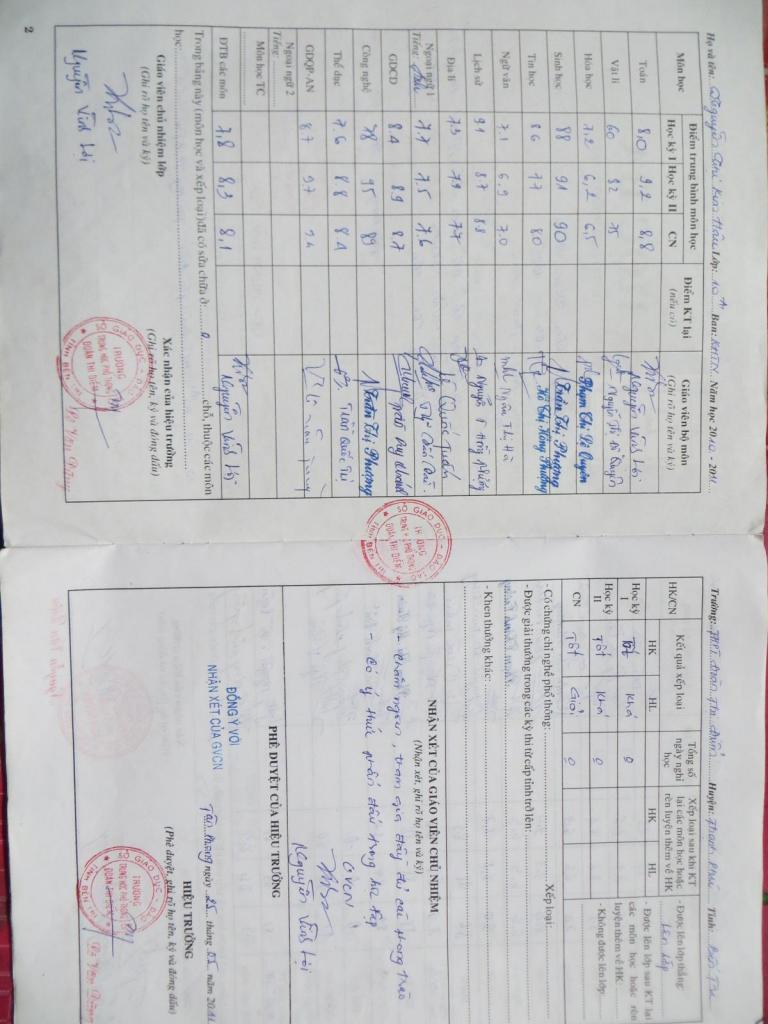 Họ và tên: Nguyễn Thị Kim Hậu Lớp: 10 A1 Ban: KHTN Năm học 2010 - 2011
Môn học Điểm trung bình môn học Điểm KT lại (nếu có) Giáo viên bộ môn (Ghi rõ họ tên và ký)
Học kỳ I Học kỳ II CN
Toán 8,0 9,2 8,8 Nguyễn Vĩnh Lợi
Vật lí 60 82 75
Hóa học 7,2 6,2 6,5 Phạm Thị Lệ Quyên
Sinh học 88 91 90 Trần Thị Phượng
Tin học 86 77 80 Hồ Thị Hồng Phướng
Ngữ văn 7.1 6,9 7.0
Lịch sử 91 87 88
Địa lí 73 79 77 Lê Quốc Tuấn
Ngoại ngữ 1 Tiếng: Anh 7.7 7.5 7.6
GDCD 84 89 8.7
Công nghệ 78 95 89 Trần Thị Phượng
Thể dục 7.6 8.8 8.4 Trần Quốc Tú
GDQP-AN 87 97 94
Ngoại ngữ 2 Tiếng
Môn học TC
ĐTB các môn 7,8 8,3 8,1 Nguyễn Vĩnh Lợi
Trong bảng này (môn học và xếp loại) đã có sửa chữa ở: 0 chỗ, thuộc các môn
học:
Giáo viên chủ nhiệm lớp
(Ghi rõ họ tên và ký)
Nguyễn Vĩnh Lợi
Xác nhận của hiệu trưởng
(Ghi rõ họ tên, ký và đóng dấu)
SỞ GIÁO DỤC - ĐÀO TẠO
TRƯỜNG
TRUNG HỌC PHỔ THÔNG
ĐOÀN THỊ ĐIỂM
TỈNH BẾN TRE
2
Trường: THPT Đoàn Thị Điểm Huyện: Thạnh Phú Tỉnh: Bến Tre
HK/CN Kết quả xếp loại Tổng số ngày nghỉ học Xếp loại sau khi KT lại các môn học hoặc rèn luyện thêm về HK
HK HL HK HL
Học kỳ I Tốt Khá 0
Học kỳ II Tốt Khá 0
CN Tốt Giỏi 0
- Được lên lớp thẳng:
Lên lớp
- Được lên lớp sau KT lại
các môn học hoặc rèn
luyện thêm về HK:
- Không được lên lớp:
- Có chứng chỉ nghề phổ thông: Xếp loại:
- Được giải thưởng trong các kỳ thi từ cấp tỉnh trở lên:
- Khen thưởng khác:
NHẬN XÉT CỦA GIÁO VIÊN CHỦ NHIỆM
(Nhận xét, ghi rõ họ tên và ký)
- Chăm ngoan, tham gia đầy đủ các phong trào
- Có ý thức phấn đấu trong học tập
GVCN
Nguyễn Vĩnh Lợi
PHÊ DUYỆT CỦA HIỆU TRƯỞNG
ĐỒNG Ý VỚI
NHẬN XÉT CỦA GVCN
ngày 25 tháng 05 năm 2011
HIỆU TRƯỞNG
(Phê duyệt, ghi rõ họ tên, ký và đóng dấu)
SỞ GIÁO DỤC - ĐÀO TẠO
TRƯỜNG
TRUNG HỌC PHỔ THÔNG
ĐOÀN THỊ ĐIỂM
TỈNH BẾN TRE